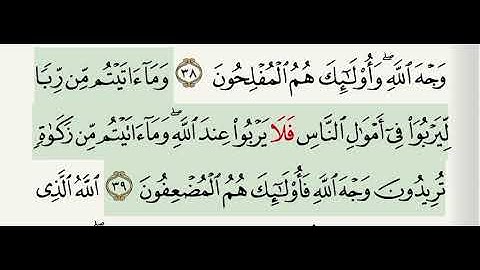 وَجْهَ ٱللَّهِ ۖ وَأُو۟لَـٰٓئِكَ هُمُ ٱلْمُفْلِحُونَ ٣٨ وَمَآ ءَاتَيْتُم مِّن رِّبًا
لِّيَرْبُوَا۟ فِىٓ أَمْوَٰلِ ٱلنَّاسِ فَلَا يَرْبُوا۟ عِندَ ٱللَّهِ ۖ وَمَآ ءَاتَيْتُم مِّن زَكَوٰةٍ
تُرِيدُونَ وَجْهَ ٱللَّهِ فَأُو۟لَـٰٓئِكَ هُمُ ٱلْمُضْعِفُونَ ٣٩ ٱللَّهُ ٱلَّذِى